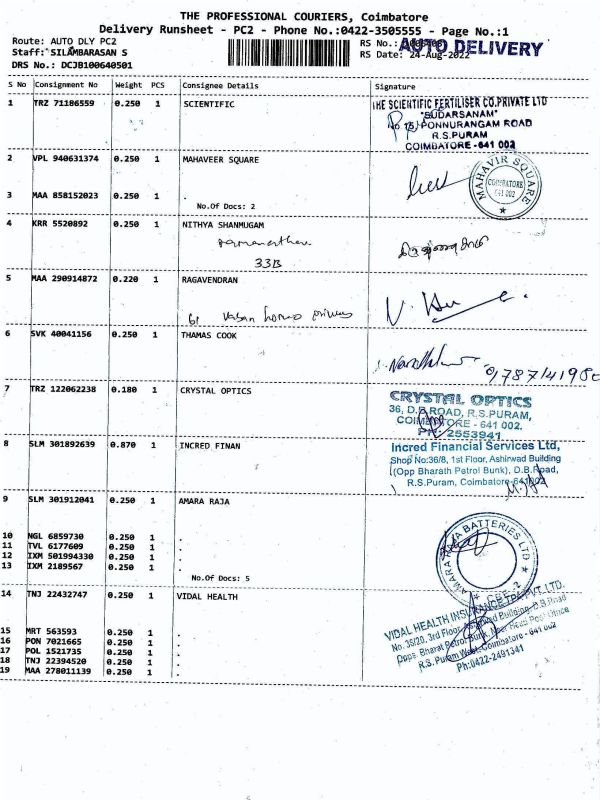 THE PROFESSIONAL COURIERS, Coimbatore
Delivery Runsheet - PC2 - Phone No.:0422-3505555 - Page No.:1
Route: AUTO DLY PC2
RS No.:
AUTO DELIVERY
Staff: SILAMBARASAN S
RS Date: 24-Aug-2022
DRS No.: DCJB100640501
S No Consignment No Weight PCS Consignee Details Signature
1 TRZ 71106559 0.250 1 SCIENTIFIC
THE SCIENTIFIC FERTILISER CO.PRIVATE LTD
"SUDARSANAM"
No 75, PONNURANGAM ROAD
R.S.PURAM
COIMBATORE - 641 002
2 VPL 940631374 0.250 1 MAHAVEER SQUARE
MAHAVIR SQUARE
COIMBATORE
641 002
3 MAA 858152023 0.250 1 .
No.Of Docs: 2
4 KRR 5520892 0.250 1 NITHYA SHANMUGAM
33B
5 MAA 290914872 0.220 1 RAGAVENDRAN
6 SVK 40041156 0.250 1 THAMAS COOK
7 TRZ 122062238 0.180 1 CRYSTAL OPTICS
CRYSTAL OPTICS
36, D.B.ROAD, R.S.PURAM,
COIMBATORE - 641 002.
PH: 2553941
8 SLM 301892639 0.870 1 INCRED FINAN
Incred Financial Services Ltd,
Shop No:36/8, 1st Floor, Ashirwad Building
(Opp Bharath Petrol Bunk), D.B.Road,
R.S.Puram, Coimbatore-641002
9 SLM 301912041 0.250 1 AMARA RAJA
AMARA RAJA BATTERIES LTD
CBE - 2
10 NGL 6859730 0.250 1 .
11 TVL 6177609 0.250 1 .
12 IXM 501994330 0.250 1 .
13 IXM 2189567 0.250 1 .
No.Of Docs: 5
14 TNJ 22432747 0.250 1 VIDAL HEALTH
VIDAL HEALTH INSURANCE TPA PVT. LTD.
No. 35/20, 3rd Floor, Ashirwad Building, D.B.Road
Opps. Bharat Petrol Bunk, Near Head Post Office
R.S. Puram West, Coimbatore - 641 002
Ph:0422-2491341
15 MRT 563593 0.250 1 .
16 PON 7021665 0.250 1 .
17 POL 1521735 0.250 1 .
18 TNJ 22394520 0.250 1 .
19 MAA 278011139 0.250 1 .